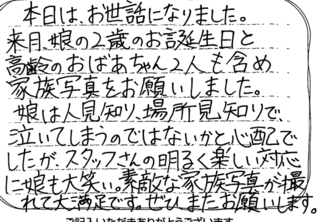 本日は、お世話になりました。
来月、娘の2歳のお誕生日と
高齢のおばあちゃん2人も含め
家族写真をお願いしました。
娘は人見知り、場所見知りで
泣いてしまうのではないかと心配で
したが、スタッフさんの明るく楽しい対応
に娘も大笑い。素敵な家族写真が撮
れて大満足です。ぜひ、またお願いします。
ご記入いただきありがとうございます